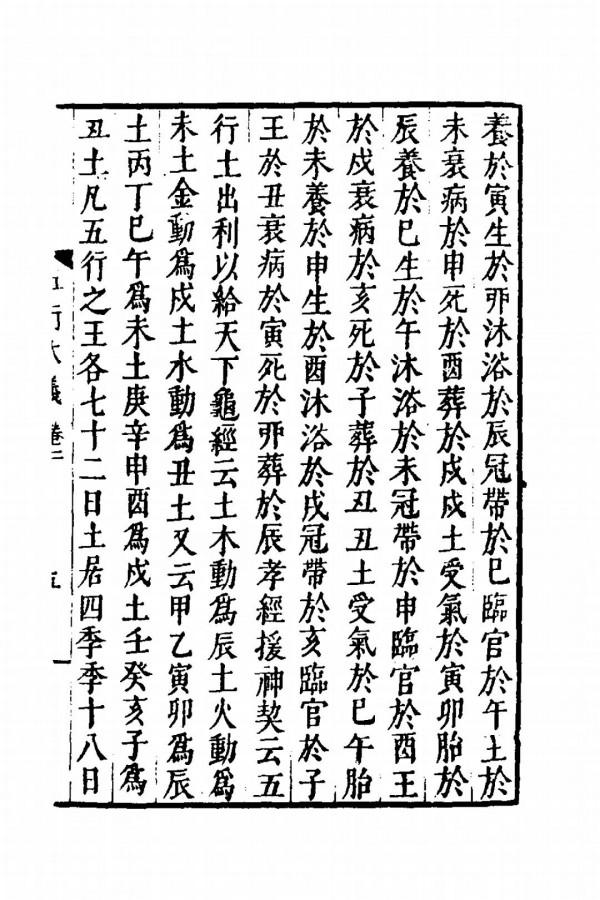 養於寅生於卯沐浴於辰冠帶於巳臨官於午土於
未衰病於申死於酉葬於戌戌土受氣於寅卯胎於
辰養於巳生於午沐浴於未冠帶於申臨官於酉王
於戌衰病於亥死於子葬於丑丑土受氣於巳午胎
於未養於申生於酉沐浴於戌冠帶於亥臨官於子
王於丑衰病於寅死於卯葬於辰孝經援神契云五
行土出利以給天下龜經云土木動爲辰土火動爲
未土金動爲戌土水動爲丑土又云甲乙寅卯爲辰
土丙丁巳午爲未土庚辛申酉爲戌土壬癸亥子爲
丑土凡五行之王各七十二日土居四季季十八日
五行大義 卷二 五